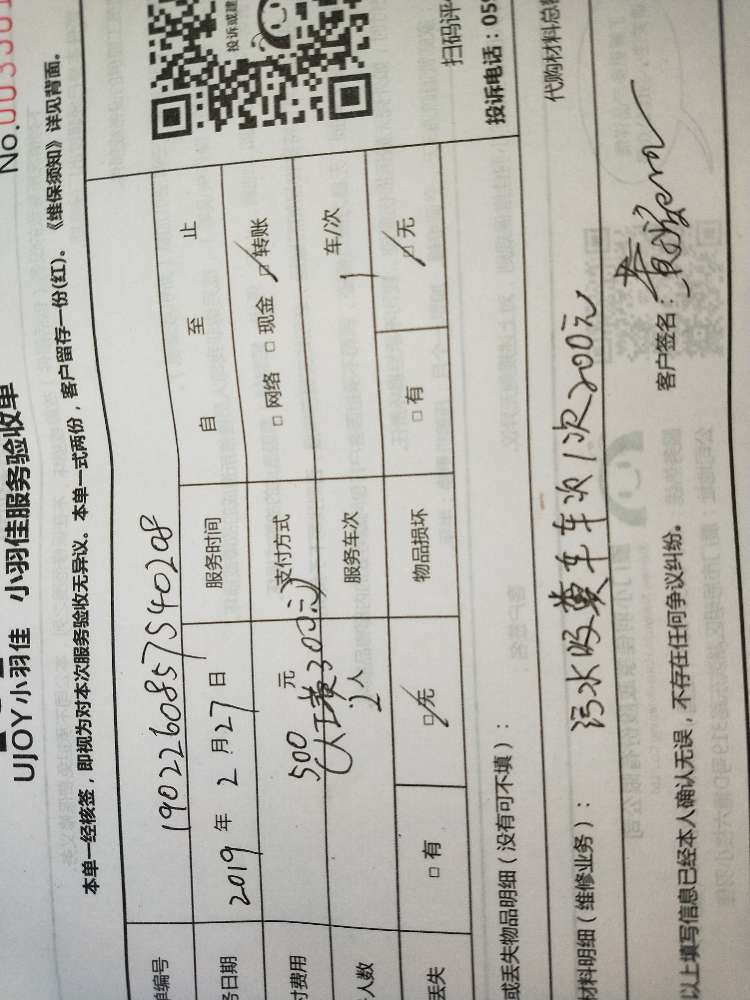 No.003301
UJOY小羽佳 小羽佳服务验收单
本单一经核签，即视为对本次服务验收无异议。本单一式两份，客户留存一份(红)。《维保须知》详见背面。
单编号 1902260857540208
务日期 2019 年 2 月 27 日 服务时间 自 至 止
付费用 500 元 (人工费300元) 支付方式 □ 网络 □ 现金 □ 转账
人数 2 人 服务车次 1 车/次
丢失 □ 有 □ 无 物品损坏 □ 有 □ 无
投诉或建
扫码评
投诉电话：059
或丢失物品明细（没有可不填）：
代购材料总额
材料明细（维修业务）： 污水吸粪车车次1次200元
客户签名：
以上填写信息已经本人确认无误，不存在任何争议纠纷。